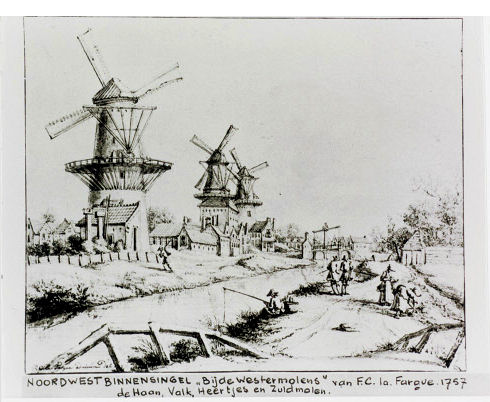 NOORDWEST BINNENSINGEL „Bijde Westermolens" van F.C. la. Fargue. 1757
de Haan, Valk, Heertjes en Zuidmolen.